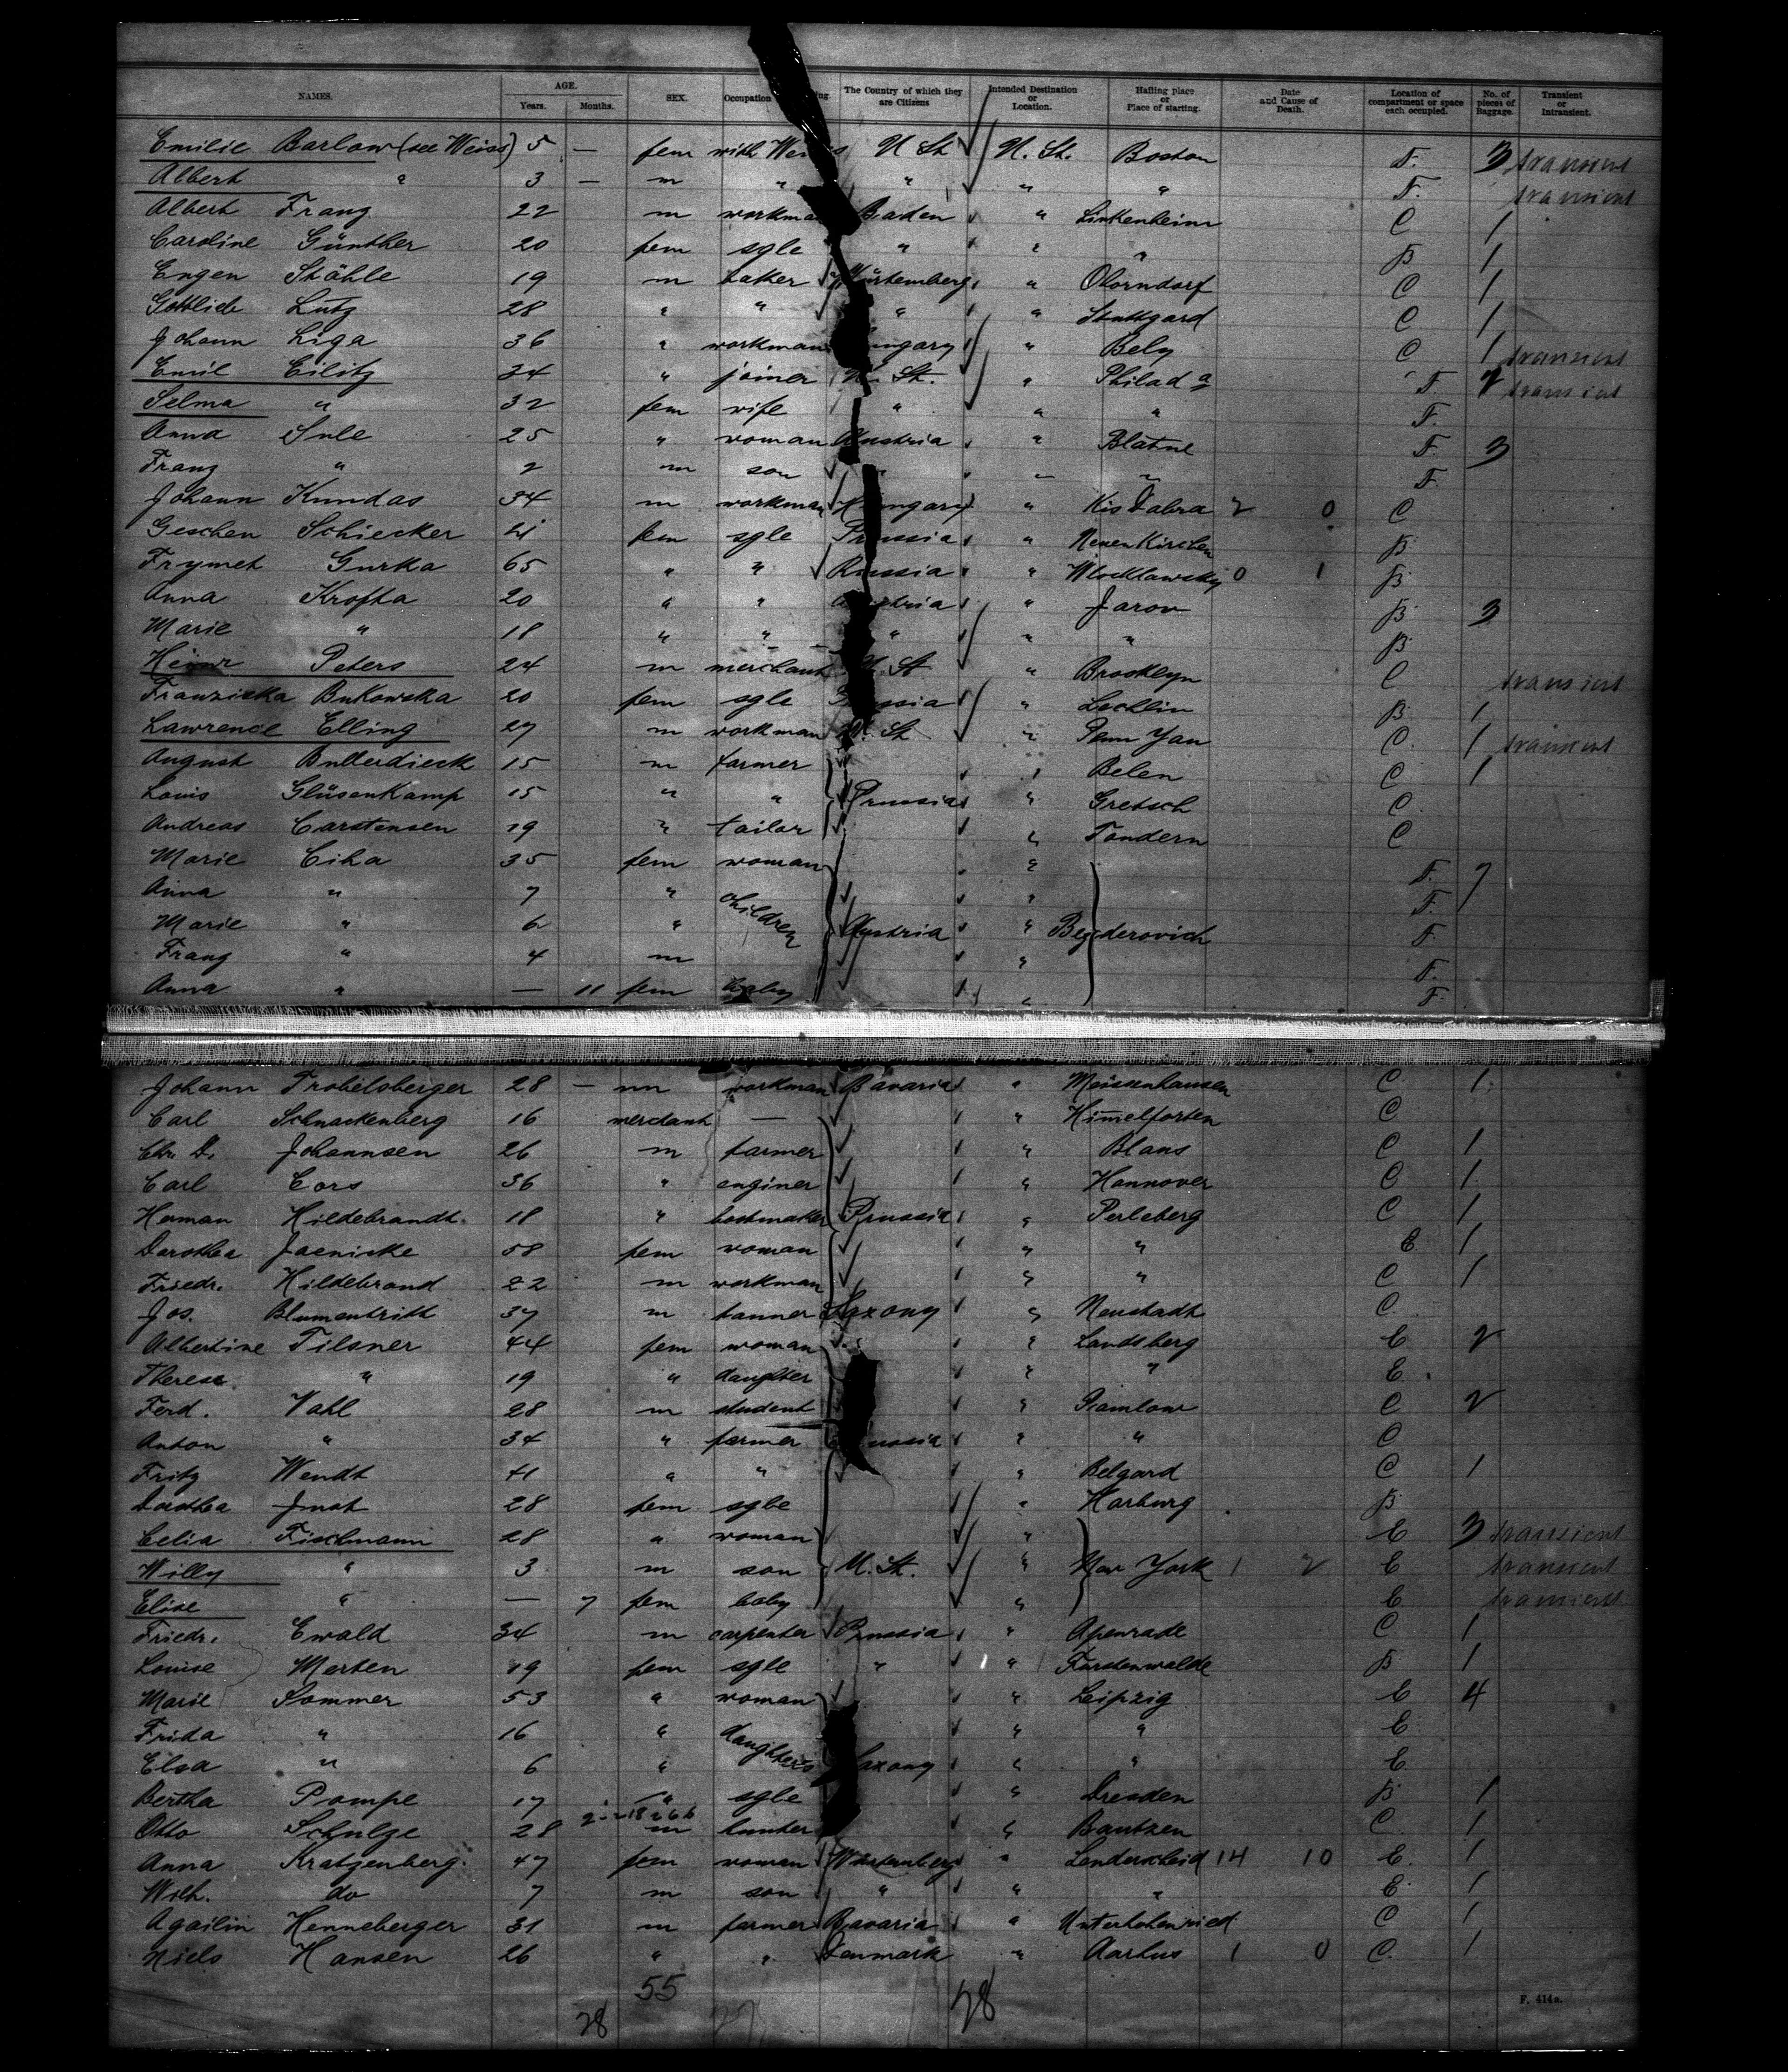 NAMES. AGE. Years. Months. SEX. Occupation The Country of which they are Citizens Intended Destination or Location. Hailing place or Place of starting. Date and Cause of Death. Location of compartment or space each occupied. No. of pieces of Baggage. Transient or Intransient.
Emilie Barlow (see Weiss) 5 — fem with Weiss U St U. St. Boston F. 3 transient
Albert " 3 — m " " " " F. transient
Albert Franz 22 m workman Baden " Linkenheim C 1
Caroline Günther 20 fem sgle " " " B 1
Eugen Stähle 19 m baker Würtemberg " Oberndorf C 1
Gottlieb Lutz 28 " " " " Stuttgard C 1
Johann Liga 36 " workman Hungary " Bely C 1 transient
Emil Eilitz 34 " joiner U. St. " Philada F 2 transient
Selma " 32 fem wife " " " F.
Anna Sule 25 " woman Austria " Blatne F. 3
Franz " 2 m son " " " F.
Johann Kundas 34 m workman Hungary " Kis Dabra 2 0 C
Geschen Schiecker 21 fem sgle Prussia " Neuenkirchen B
Frymet Gurka 65 " " Russia " Wlocklawsky 0 1 B
Anna Krofta 20 " " Austria " Jarov B 3
Marie " 18 " " " " " B
Heinr Peters 24 m merchant U. St " Brooklyn C transient
Franziska Bukowska 20 fem sgle Prussia " Lechlin B 1
Lawrence Elling 27 m workman U. St " Penn Yan C. 1 transient
August Bullerdieck 15 m farmer " Belen C 1
Louis Glüsenkamp 15 " " Prussia " Gretsch C.
Andreas Carstensen 19 " tailor " Tondern C
Marie Ciha 35 fem woman " F. 7
Anna " 7 " children " F.
Marie " 6 " Austria " Bezderovich F.
Franz " 4 m " F.
Anna " — 11 fem baby " F.
Johann Trobelsberger 28 — m workman Bavaria " Meissenhausen C 1
Carl Schnackenberg 16 merchant — " Himmelforten C
Chr. D. Johannsen 26 m farmer " Blans C 1
Carl Cors 36 " enginer " Hannover C 1
Herman Hildebrandt. 18 " bootmaker Prussia " Perleberg C 1
Dorothea Jaenicke 58 fem woman " " E 1
Friedr. Hildebrand 22 m workman " " C 1
Jos. Blumentritt 37 m tanner Saxony " Neustadt C
Albertine Tilsner 44 fem woman " Landsberg E 2
Therese " 19 " daughter " " E
Ferd. Vahl 28 m student " Gramlow C 2
Anton " 34 " farmer Prussia " " C
Fritz Wendt 41 " " " Belgard C 1
Dorothea Jmat 28 fem sgle " Harburg B
Celia Fischmann 28 " woman " E 3 transient
Willy " 3 m son U. St. " New York 1 2 E transient
Elise " — 7 fem baby " E transient
Friedr. Ewald 34 m carpenter Prussia " Apenrade C 1
Louise Merten 19 fem sgle " " Fürstenwalde B 1
Marie Sommer 53 " woman " Leipzig E 4
Frida " 16 " daughters " " E
Elsa " 6 " Saxony " " E
Bertha Pampe 17 " sgle " Dresden B 1
Otto Schulze 28 m hunter " Bautzen C 1
Anna Kratzenberg. 47 fem woman Würtemberg " Lenderscheid 14 10 E. 1
Wilh. do 7 m son " " " E 1
Agailin Henneberger 31 m farmer Bavaria " Unterhohenried C 1
Niels Hansen 26 " " Denmark " Aarhus 1 0 C. 1
55
28
F. 414a.